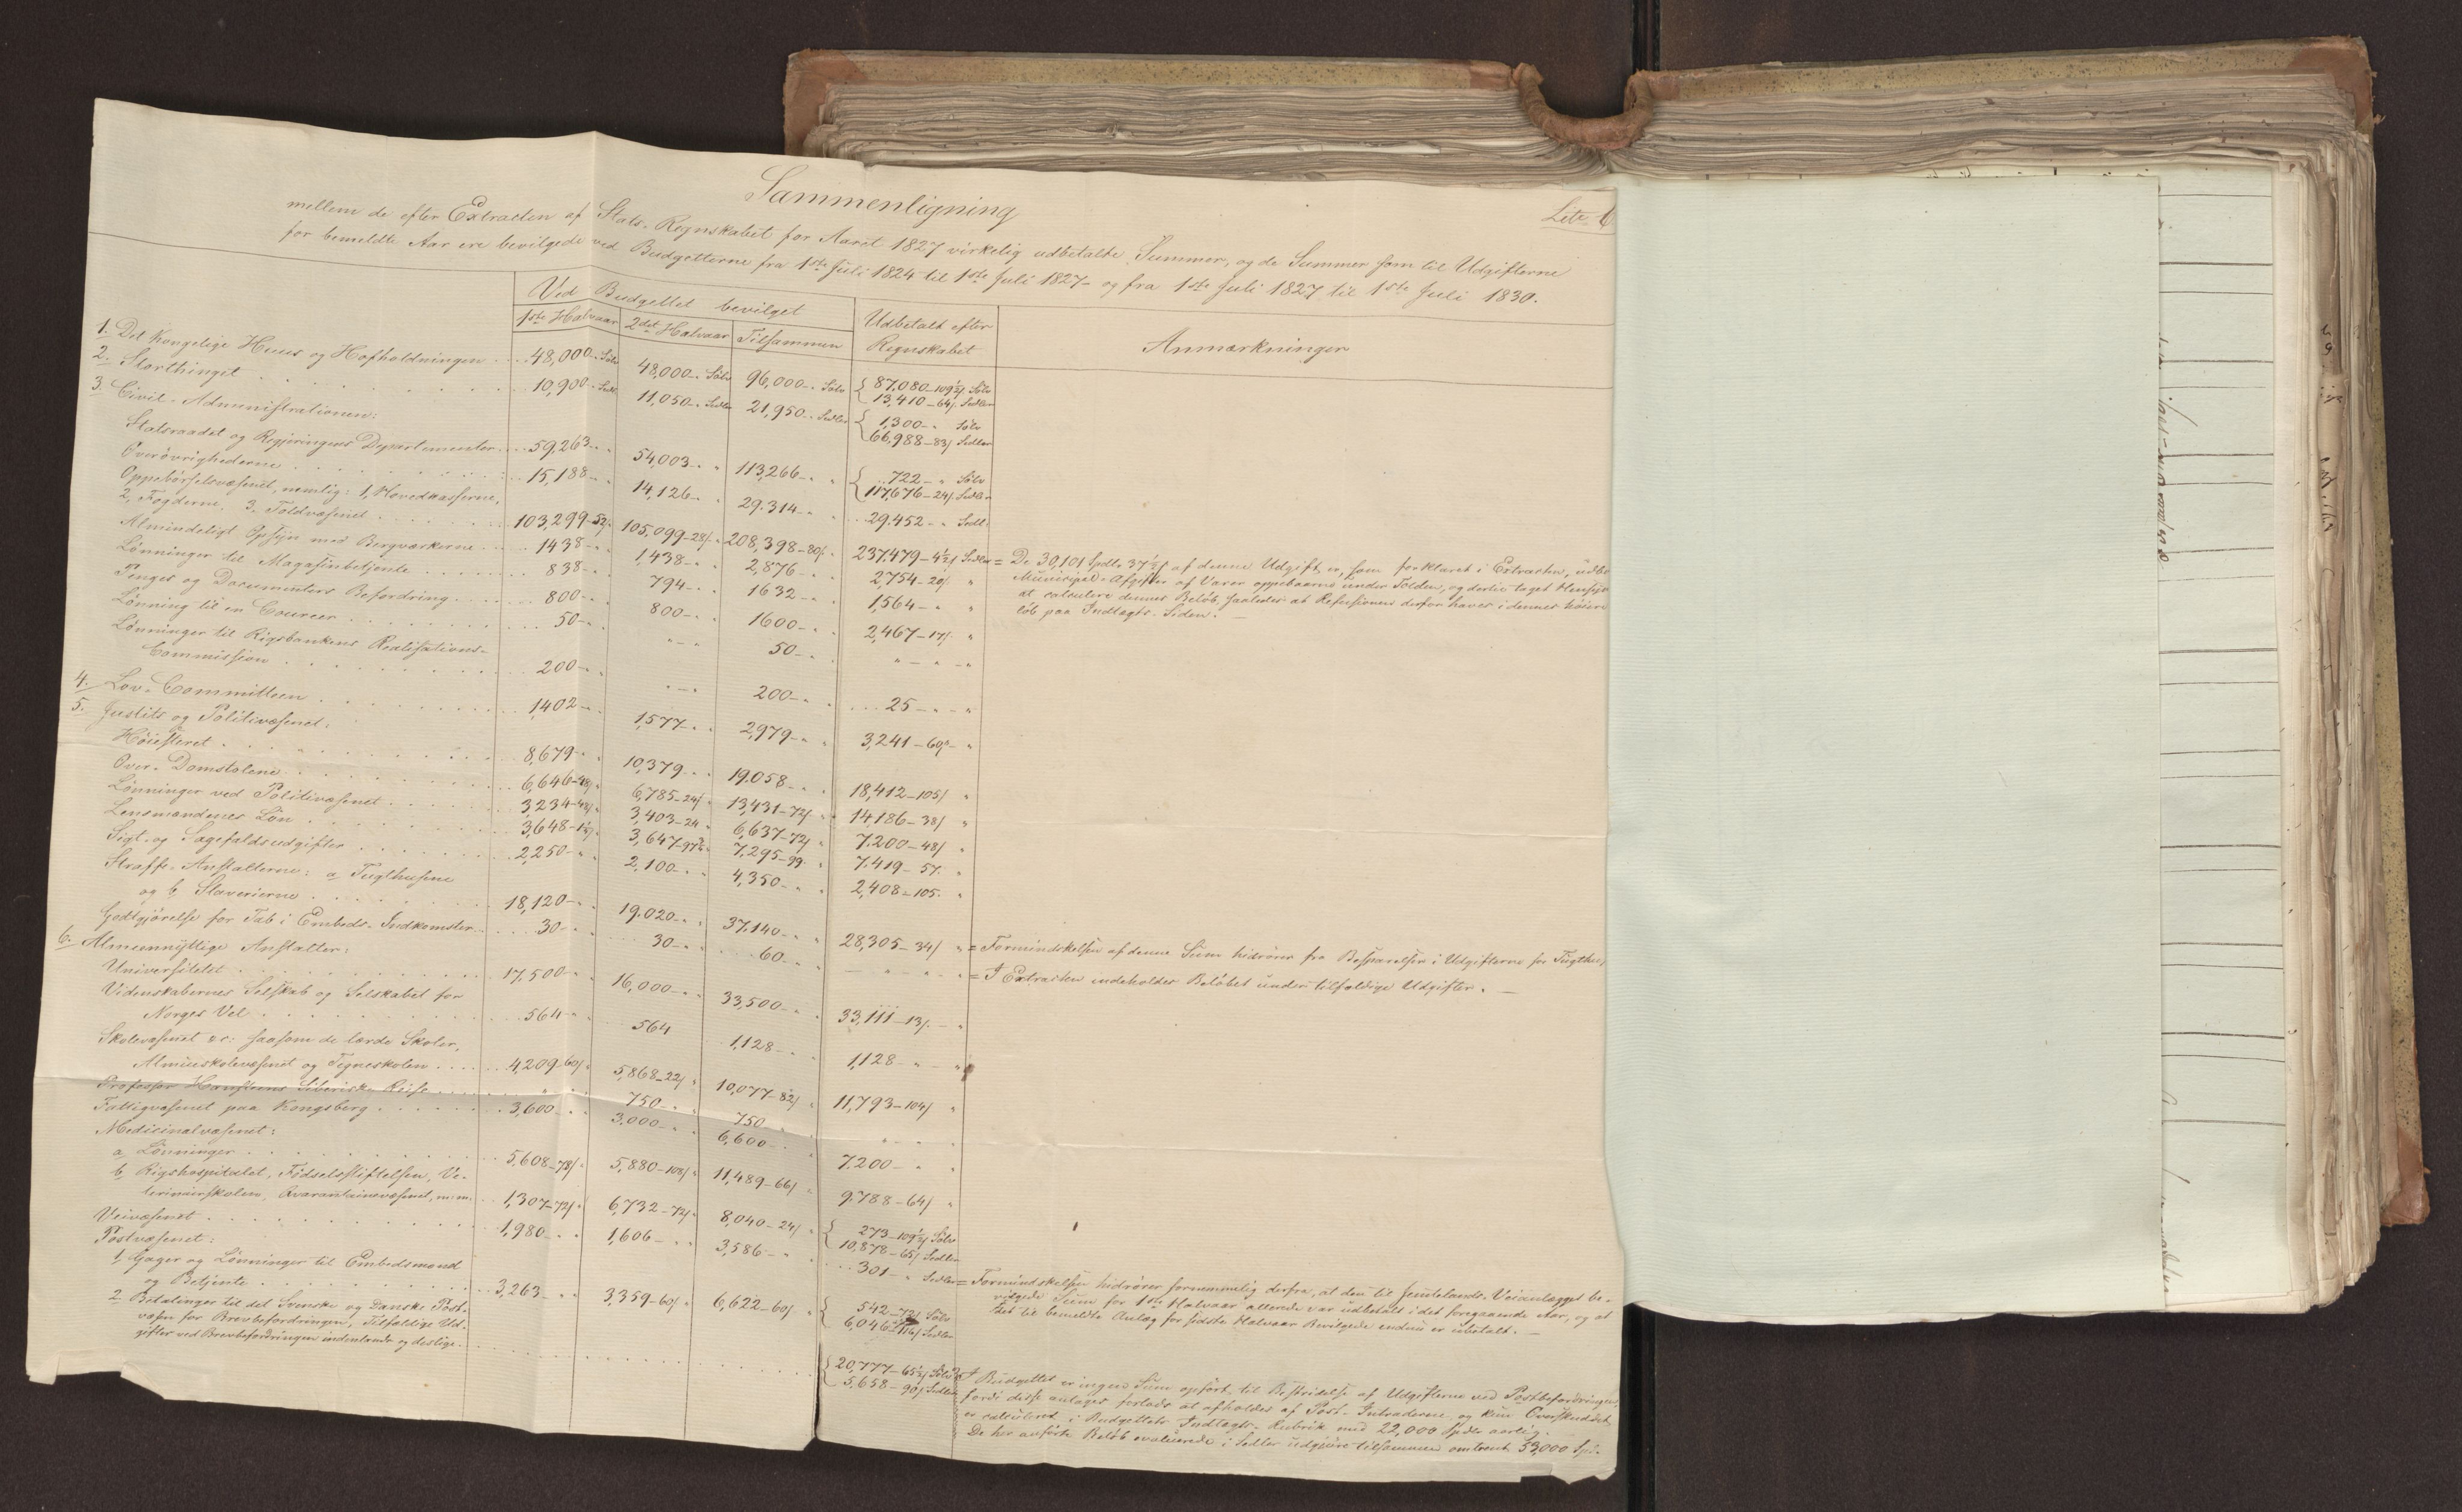 Sammenligning
Litr.
mellem de efter Extracten af Stats-Regnskabet for Aaret 1827 virkelig udbetalte Summer, og de Summer som til Udgifterne
for bemeldte Aar ere bevilgede ved Budgetterne fra 1ste Juli 1824 til 1ste Juli 1827 og fra 1ste Juli 1827 til 1ste Juli 1830.
Ved Budgettet bevilget
1ste Halvaar 2det Halvaar Tilsammen Udbetalt efter Regnskabet Anmærkninger
1. Det Kongelige Huus og Hofholdningen 48,000 - " Sölv 48,000 - " Sölv 96,000 - " Sölv { 87,080 - 109½/ Sölv
13,410 - 64/ Sedler
2. Storthinget 10,900 - " Sedl. 11,050 - " Sedler 21,950 - " Sedler { 1,300 - " Sölv
66,988 - 83/ Sedler
3. Civil-Administrationen:
Statsraadet og Regjeringens Departementer 59,263 - " " 54,003 - " " 113,266 - " " { 722 - " Sölv
117,676 - 24/ Sedler
Overövrighederne 15,188 - " " 14,126 - " " 29.314 - " " 29.452 - " Sedl.
Oppebörselsvæsenet, nemlig: 1, Hovedkasserne,
2, Fogderne. 3. Toldvæsenet 103,299 - 52/ " 105,099 - 28/ " 208,398 - 80/ " 237,479 - 4½/ Sedler = De 30,101 Spdlr 37½/ af denne Udgift er, som forklaret i Extracten, udbe
Municipal-Afgifter af Varer oppebaarne under Tolden, og dertil taget Hensyn
at calculere dennes Belöb, saaledes at Refusionen derfor haves i dennes höiere
löb paa Indtægts-Siden. —
Almindeligt Opsyn med Bergværkerne 1438 - " " 1,438 - " " 2,876 - " " 2754 - 20/ "
Lönninger til Magasinbetjente 838 - " " 794 - " " 1632 - " " 1,564 - " "
Penges og Documenters Befordring 800 - " " 800 - " " 1600 - " " 2,467 - 17/ "
Lönning til en Coureer 50 - " " " - " 50 - " " " - " - "
Lönninger til Rigsbankens Realisations-
Commission 200 - " " " - " 200 - " " 25 - " - "
4. Lov-Committeen 1402 - " " 1,577 - " " 2,979 - " " 3,241 - 60/ "
5. Justits og Politivæsenet:
Höiesteret 8,679 - " " 10,379 - " " 19.058 - " " 18,412 - 105/ "
Over-Domstolene 6,646 - 48/ " 6,785 - 24/ " 13,431 - 72/ " 14,186 - 38/ "
Lönninger ved Politivæsenet 3,234 - 48/ " 3,403 - 24 " 6,637 - 72/ " 7.200 - 48/ "
Lensmændenes Lön 3,648 - 1½/ " 3,647 - 97½ " 7,295 - 99 " 7.419 - 57. "
Sigt- og Sagefaldsudgifter 2,250 - " " 2,100 - " " 4,350 - " " 2,408 - 105. "
Straffe-Anstalterne: a Tugthusene
og b, Slaverierne 18,120 - " " 19.020 - " " 37.140 - " " 28,305 - 34/ " = Formindskelsen af denne Sum hidrörer fra Besparelser i Udgifterne for Tugthu,
Godtgjörelse for Tab i Embeds-Indkomster 30 - " " 30 - " " 60 - " " — " - " " = I Extracten indeholdes Belöbet under tilfældige Udgifter. —
6. Almeennyttige Anstalter:
Universitetet 17,500 - " " 16,000 - " " 33,500 - " " 33,111 - 13/. - "
Videnskabernes Selskab og Selskabet for
Norges Vel 564 - " " 564 1,128 - " " 1,128 - " - "
Skolevæsenet o: saasom de lærde Skoler,
Almueskolevæsenet og Tegneskolen 4,209 - 60/ " 5,868 - 22/ " 10,077 - 82/ " 11,793 - 104/ "
Professor Hansteens Siberiske Reise " " 750 - " " 750 " - " - "
Fattigvæsenet paa Kongsberg 3,600 - " " 3.000 - " " 6,600 - " " 7.200 - " "
Medicinalvæsenet:
a Lönninger 5,608 - 78/ " 5,880 - 108/ " 11,489 - 66/ " 9.788 - 64/ "
b, Rigshospitalet, Födselsstiftelsen, Ve-
terinairskolen, Qvarantainevæsenet, m: m: 1,307 - 72/ " 6,732 - 72/ " 8,040 - 24/ " { 273 - 109½/ Sölv
10,878 - 65/ Sedler
Veivæsenet 1,980 - " " 1,606 - " " 3,586 - " " 301 - " Sedler = Formindskelsen hidrörer fornemmelig derfra, at den til Jemtelands-Veianlægget be-
vilgede Sum for 1ste Halvaar allerede var udbetalt i det foregaaende Aar, og at
det til bemeldte Anlæg for sidste Halvaar Bevilgede endnu er ubetalt. —
Postvæsenet:
1, Gager og Lönninger til Embedsmænd
og Betjente 3,263 - " " 3,359 - 60/ " 6,622 - 60/ " { 542 - 72/ Sölv
6,046 - 116/ Sedler
2 Betalinger til det Svenske og Danske Post-
væsen for Brevbefordringen, Tilfældige Ud-
gifter ved Brevbefordringen indenlands og deslige. { 20,777 - 65½/ Sölv
5,658 - 90/ Sedler
I Budgettet er ingen Sum opfört til Bestridelse af Udgifterne ved Postbefordringen,
fordi disse antages forlods at afholdes af Post-Intraderne, og kun Overskuddet
er calculeret i Budgettets Indtægts-Rubrik med 22,000 Spdlr aarlig.
De her anförte Belöb evaluerede i Sedler udgjöre tilsammen omtrent 53,000 Spd.